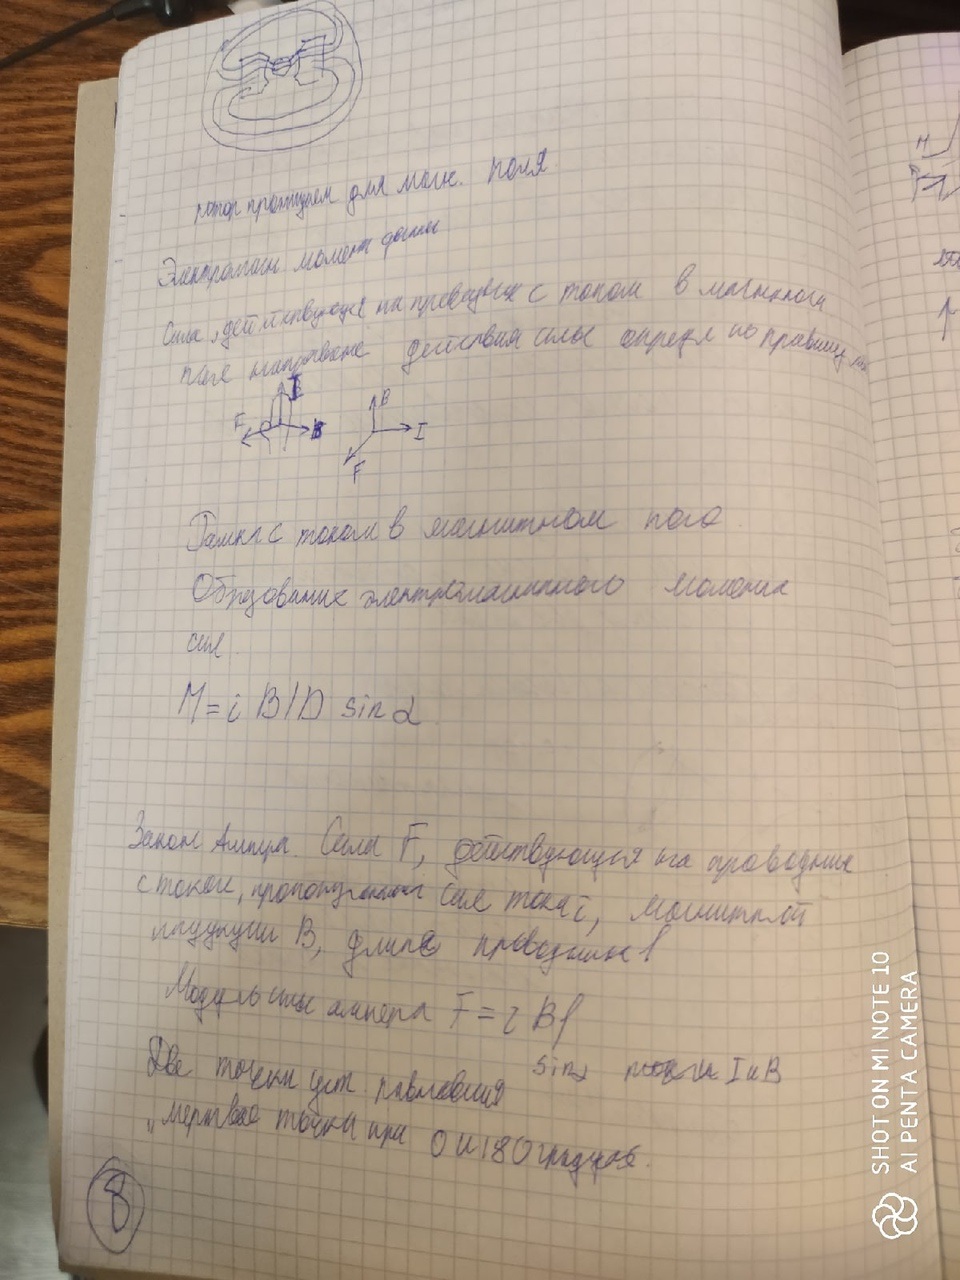 ротор для магн. поля
момент
Сила, действующая на проводник с током в магнитном
поле направление действия силы опредл по правилу
I
F B
B
I
F
Рамка с током в магнитном
Образование электромагнитного момента
сил.
M = i B l D sin α
Закон Ампера. Сила F, действующая на проводник
с током, силе тока i, магнитной
индукции B, длине проводника l
Модуль силы ампера F = i B l
sin α I и B
Две точки уст. равновесия
"мертвые точки при 0 и 180 градусов.
8
SHOT ON MI NOTE 10
AI PENTA CAMERA